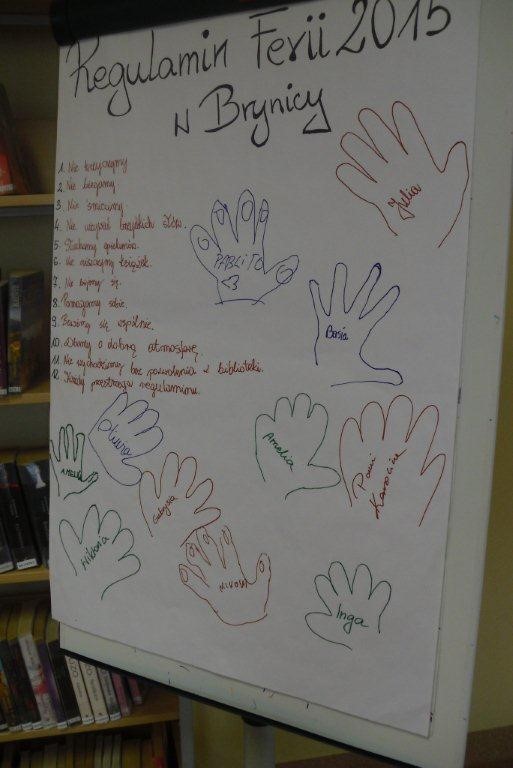 Regulamin Ferii 2015
w Brynicy
1. Nie krzyczymy
2. Nie biegamy
3. Nie śmiecimy
4. Nie używać brzydkich słów.
5. Słuchamy opiekunów.
6. Nie niszczymy książek.
7. Nie bijemy się.
8. Pomagamy sobie.
9. Bawimy się wspólnie.
10. Dbamy o dobrą atmosferę.
11. Nie wychodzimy bez pozwolenia z biblioteki.
12. Każdy przestrzega regulaminu.
Julia
PABLITO
<3
Basia
Oliwia
Amelia
Pani
Karolina
Gabrysia
Wiktoria
Inga